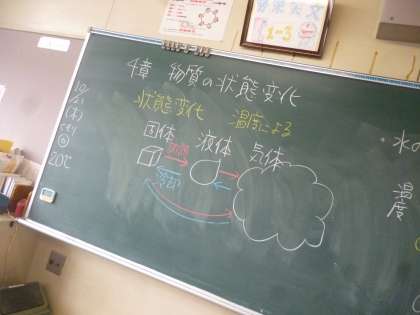 4章 物質の状態変化
状態変化 温度による
固体 液体 気体
加熱
冷却
(木)
20℃
・水の
温度
1-3